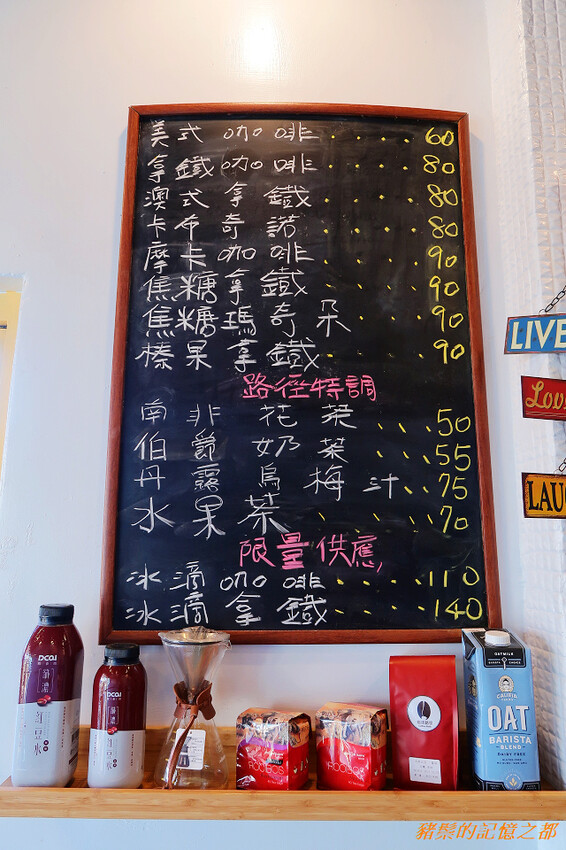 美式咖啡 60
拿鐵咖啡 80
澳式拿鐵 80
卡布奇諾 80
摩卡咖啡 90
焦糖拿鐵 90
焦糖瑪奇朵 90
榛果拿鐵 90
路徑特調
南非花茶 50
伯爵奶茶 55
丹露烏梅汁 75
水果茶 70
限量供應
冰滴咖啡 110
冰滴拿鐵 140
LIVE
Love
LAUG
DCAL
紅豆水
DCAL
紅豆水
ROOIBOS
ROOIBOS
OATMILK
CALIFIA
FARMS
OAT
BARISTA
BLEND
DAIRY FREE
豬鬃的記憶之都